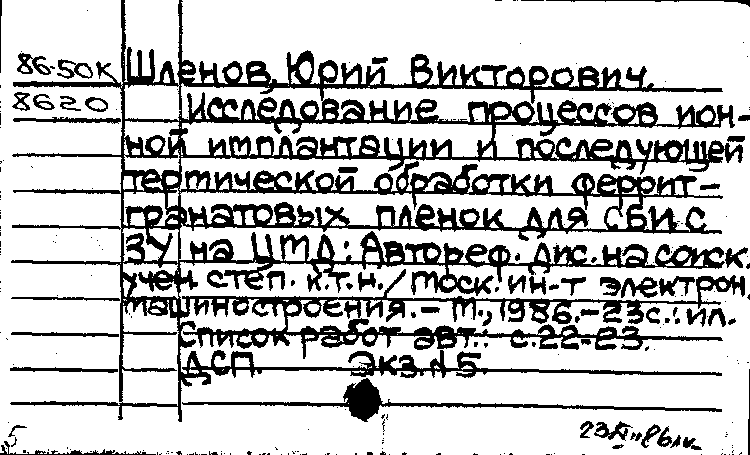 86-50К Шленов, Юрий Викторович.
8620 Исследование процессов ион-
ной имплантации и последующей
термической обработки феррит-
гранатовых пленок для СБИС
ЗУ на ЦМД: Автореф. дис. на соиск.
учен. степ. к.т.н. / Моск. ин-т электрон.
машиностроения. - М., 1986. - 23с.: ил.
Список работ авт.: с.22-23.
ДСП. Экз. № 5.
5